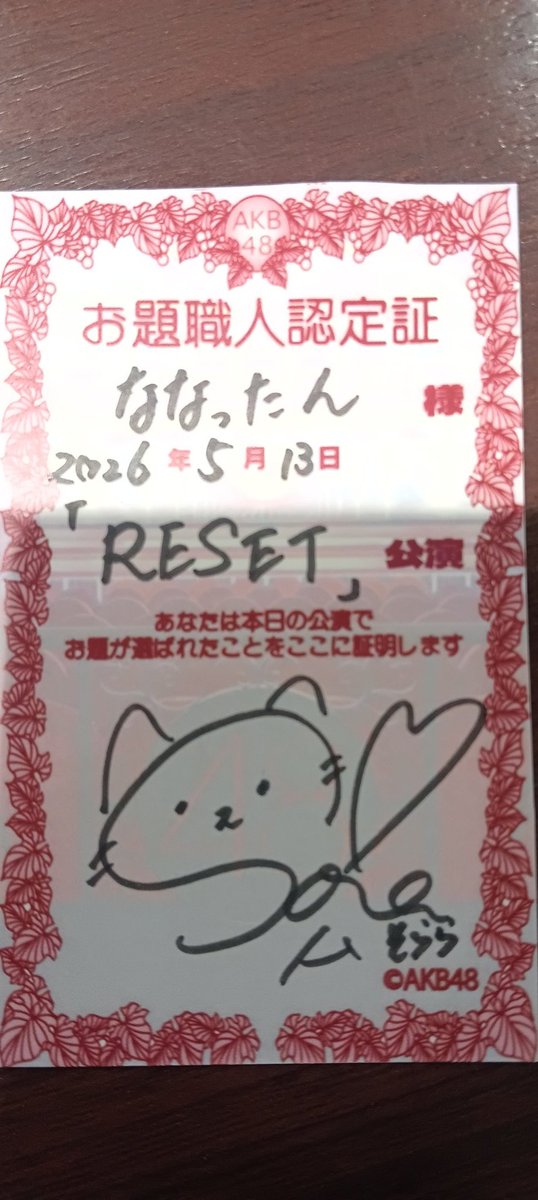 AKB
48
お題職人認定証
ななったん 様
2026年5月13日
「RESET」公演
あなたは本日の公演で
お題が選ばれたことをここに証明します
Sora
そらら
©AKB48